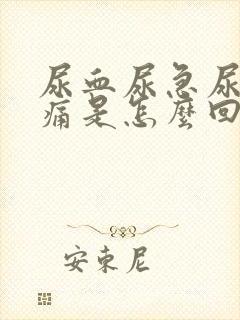 尿血尿急尿
痛是怎麼回
安東尼